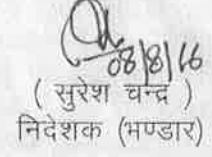 08/8/16
( सुरेश चन्द्र )
निदेशक (भण्डार)